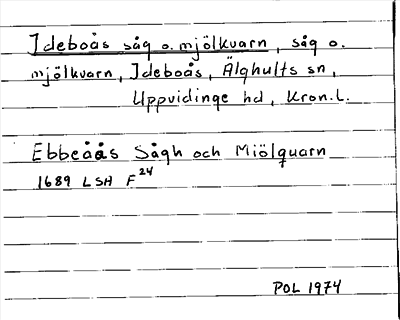 Ideboås såg o. mjölkvarn, såg o.
mjölkvarn, Ideboås, Älghults sn,
Uppvidinge hd, Kron.l.
Ebbeåås Sågh och Miölquarn
1689 LSH F 24
POL 1974